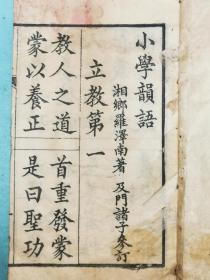 小學韻語
湘鄉羅澤南著 及門諸子參訂
立教第一
教人之道 首重發蒙
蒙以養正 是曰聖功